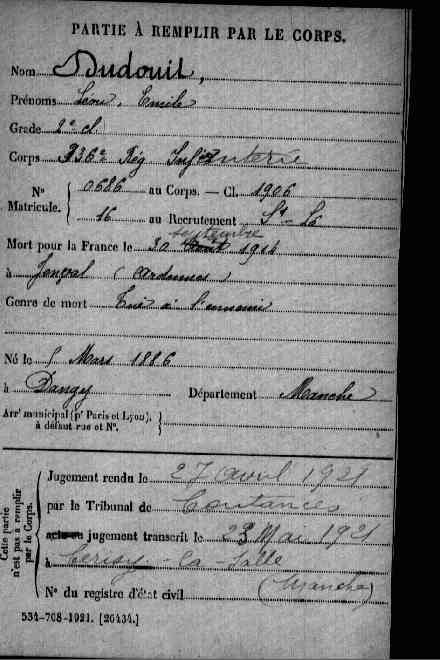 PARTIE À REMPLIR PAR LE CORPS.
Nom Dudouit,
Prénoms Léon, Emile
Grade 2e cl
Corps 336e Rég Infanterie
N° Matricule. 0686 au Corps. — Cl. 1906
16 au Recrutement St-Lô
septembre
Mort pour la France le 30 Août 1914
à (Ardennes)
Genre de mort Tué à l'ennemi
Né le 5 Mars 1886
à Dangy Département Manche
Arrt municipal (pr Paris et Lyon),
à défaut rue et N°.
Cette partie
n'est pas à remplir
par le Corps.
Jugement rendu le 27 avril 1921
par le Tribunal de Coutances
acte ou jugement transcrit le 23 Mai 1921
à Cerisy-la-Salle
(Manche)
N° du registre d'état civil
534-708-1921. [26434.]